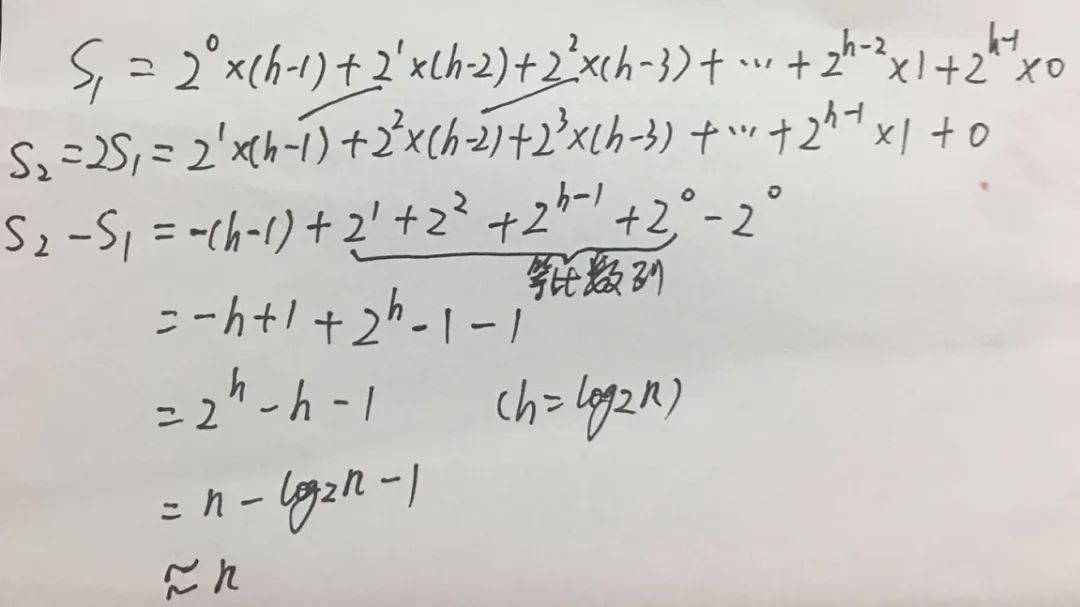 S₁ = 2⁰×(h-1) + 2¹×(h-2) + 2²×(h-3) + ⋯ + 2ʰ⁻²×1 + 2ʰ⁻¹×0
S₂ = 2S₁ = 2¹×(h-1) + 2²×(h-2) + 2³×(h-3) + ⋯ + 2ʰ⁻¹×1 + 0
S₂ - S₁ = -(h-1) + 2¹ + 2² + 2ʰ⁻¹ + 2⁰ - 2⁰
等比数列
= -h+1 + 2ʰ - 1 - 1
= 2ʰ - h - 1 (h = log₂n)
= n - log₂n - 1
≈ n